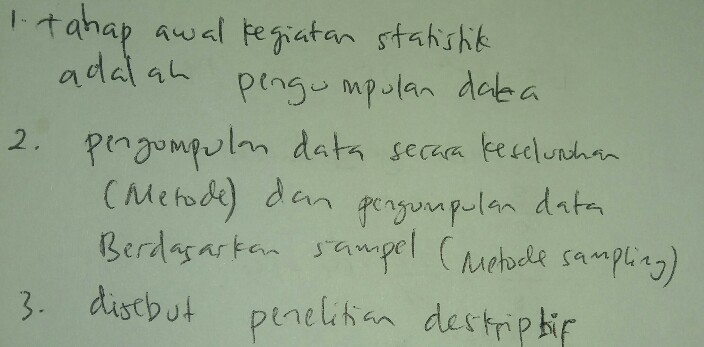 1. tahap awal kegiatan statistik
adalah pengumpulan data
2. pengumpulan data secara keseluruhan
(Metode) dan pengumpulan data
Berdasarkan sampel (Metode sampling)
3. disebut penelitian deskriptif